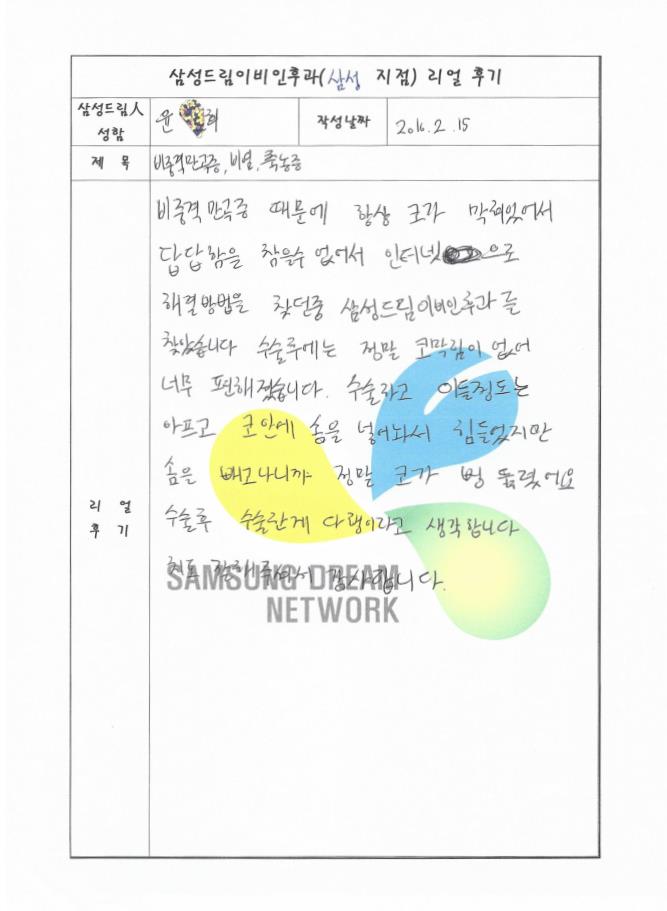 삼성드림이비인후과(삼성 지점) 리얼 후기
삼성드림人 성함 윤 희 작성날짜 2016.2.15
제 목 비중격만곡증, 비염, 축농증
비중격 만곡증 때문에 항상 코가 막혀있어서
답답함을 참을수 없어서 인터넷으로
해결방법을 찾던중 삼성드림이비인후과를
찾았습니다 수술후에는 정말 코막힘이 없어
너무 편해졌습니다. 수술하고 이틀정도는
아프고 코안에 솜을 넣어놔서 힘들었지만
솜을 빼고나니까 정말 코가 뻥 뚫렸어요
리 얼 후 기
수술후 수술한게 다행이라고 생각합니다
치료 잘해주셔서 감사합니다.
SAMSUNG DREAM
NETWORK